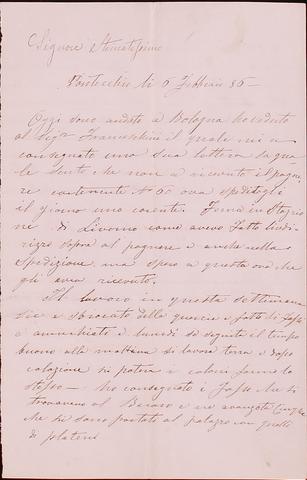 Signore Stimatissimo
Pontecchio li 6 Febbraio 86 –
Oggi sono andato a Bologna ho veduto
al Sigr Franceschini il quale mi a
consegnato una Sua lettera la qua
le Sento che non a ricevuto il pagnere
contenente No 60 ova speditogli
il giorno uno corente. Fermo in Stazio
ne di Livorno come avevo fatto l'indi
rizzo sopra al pagnere e anche nella
Spedizione ma spero a questa ora che
gli avra ricevuto.
Il lavoro in questa settimana
si e sbrocato delle quercie e fatto di fassi
e amuchiati e lunedi se seguita il tempo
buono alla mattina si lavora terra e dopo
colazione si poterà i colori faremo lo
stesso – ho consegnato i fassi che si
trovavano al e ne avanzato Cinque
che si sono portati al palazzo con quelli
di platani